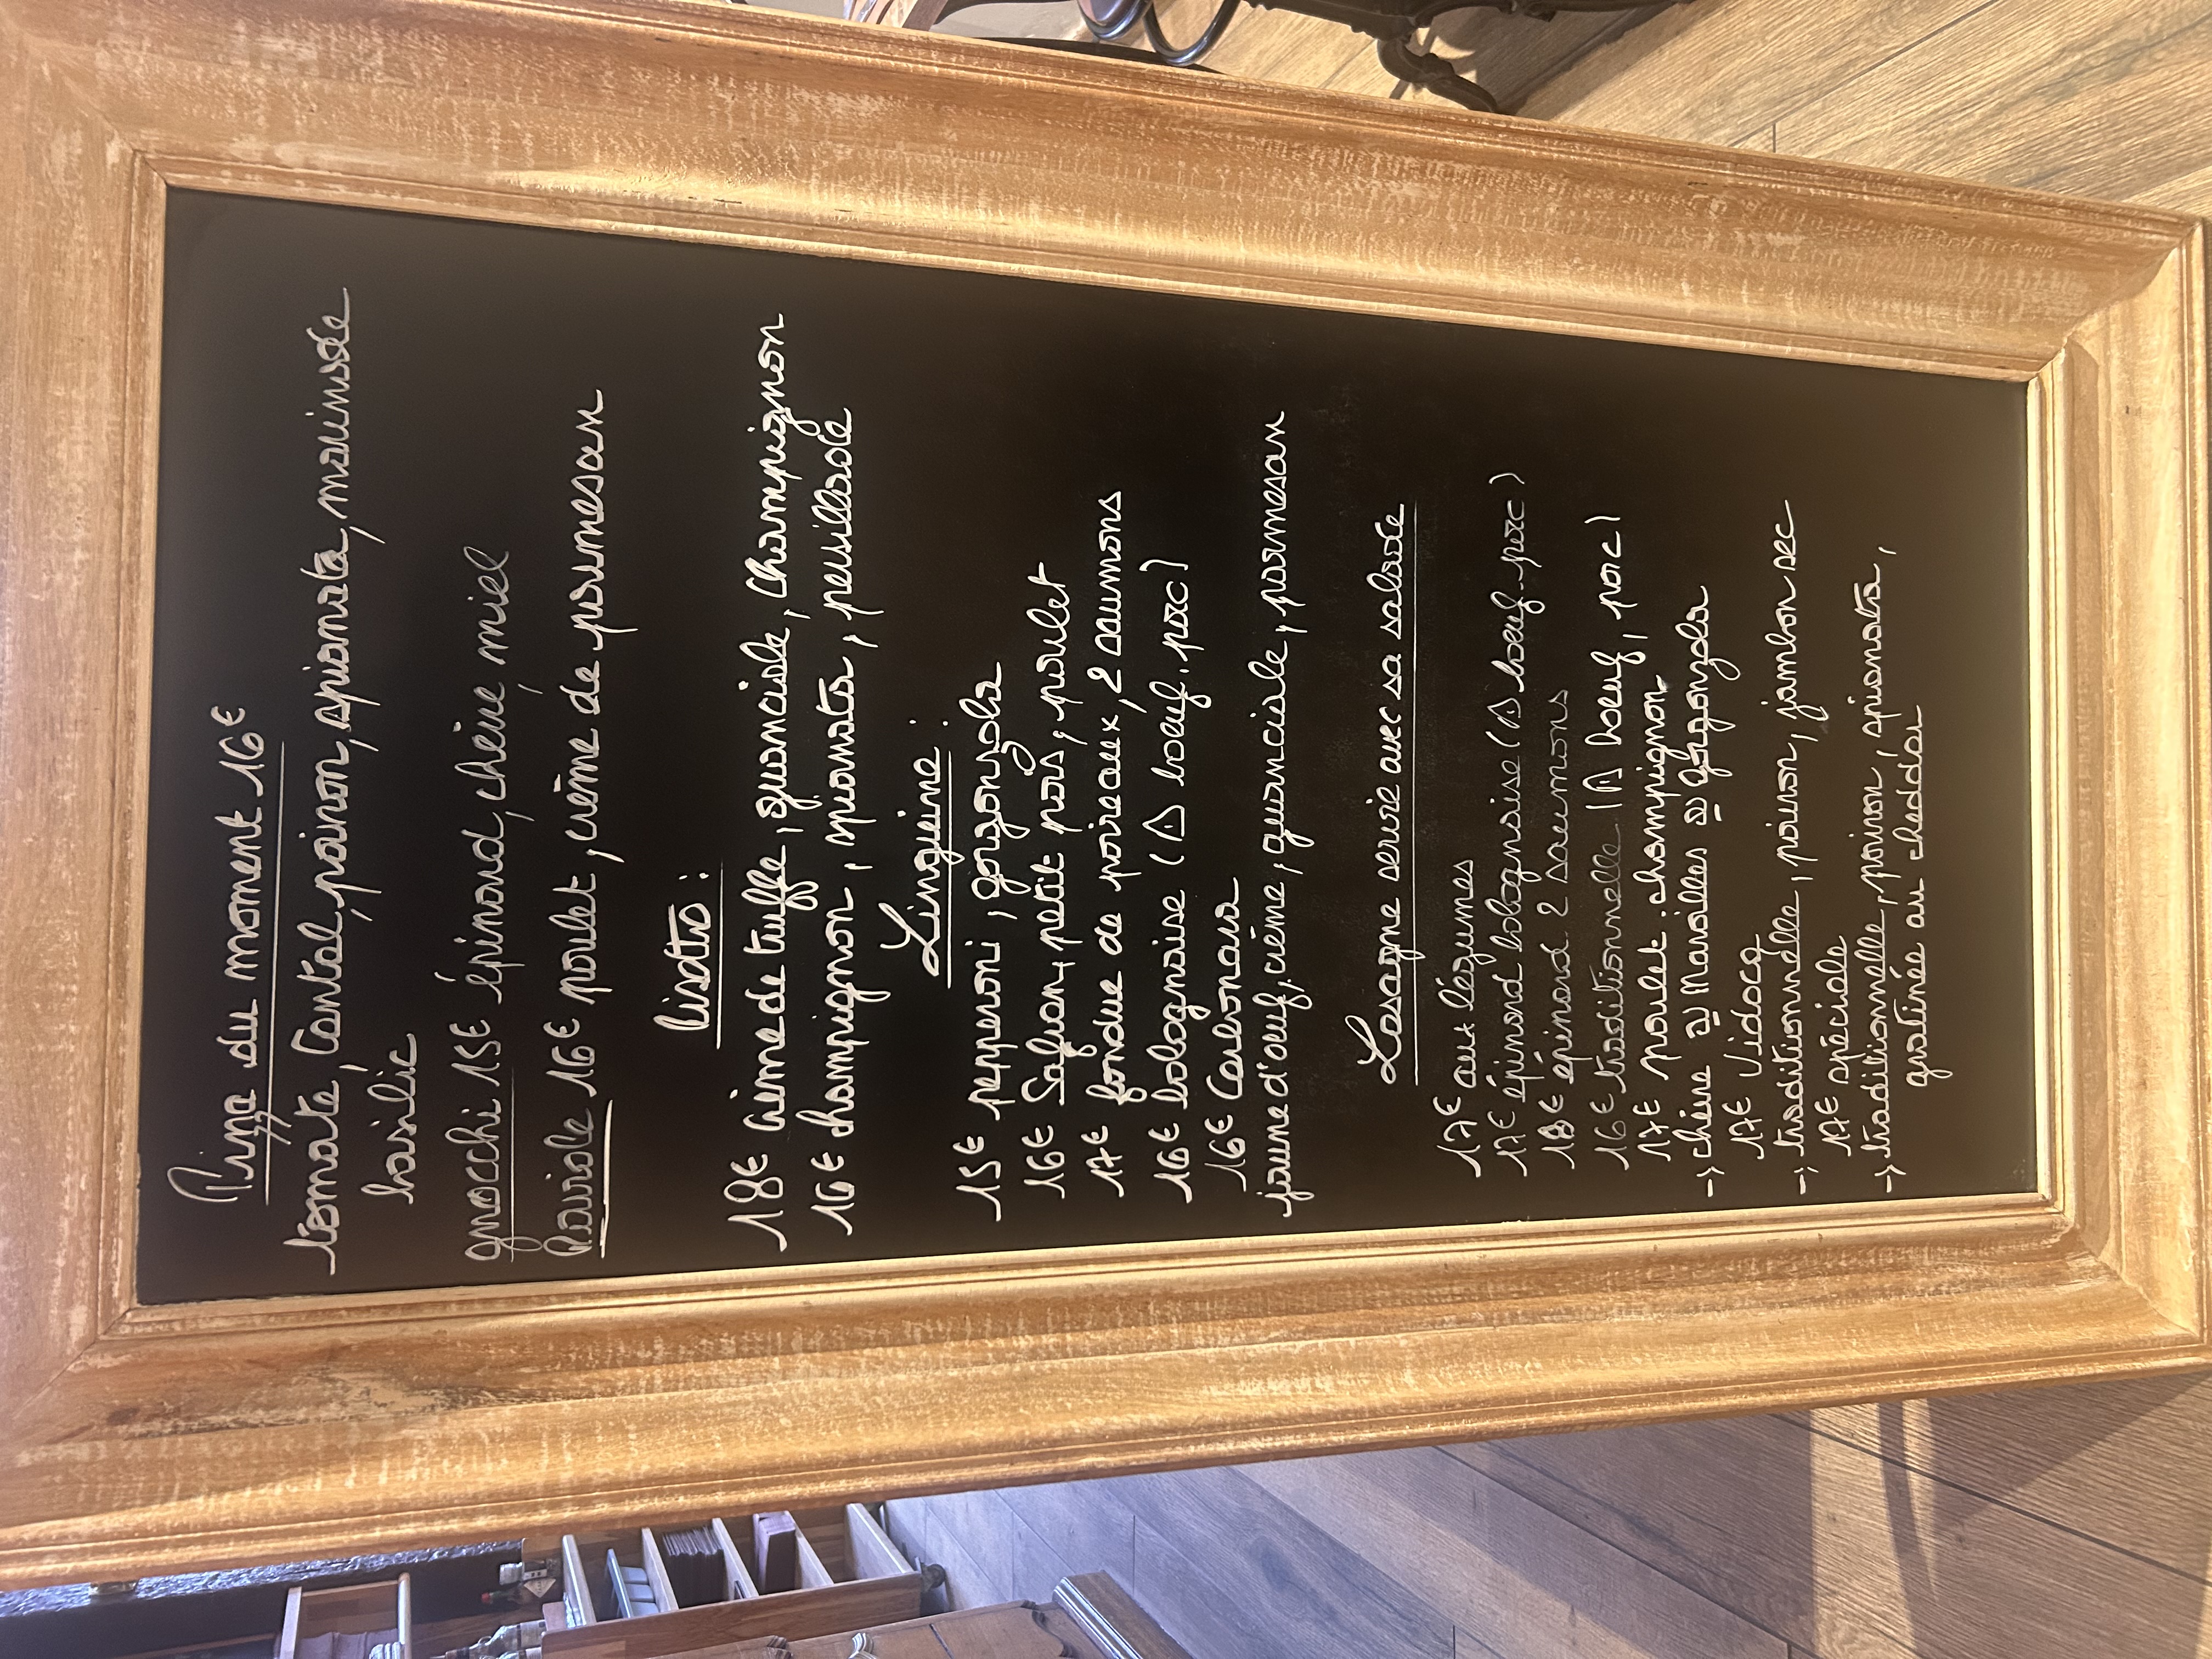 Pizza du moment 16€
tomate, Cantal, poivron, spianata, mainissée
basilic
gnocchi 15€ épinard, chèvre, miel
Raviole 16€ poulet, crème de parmesan
Risotto :
18€ crème de truffe, guanciale, champignon
16€ champignon, spianata, persillade
Linguine :
15€ pepperoni, gorgonzola
16€ Safran, petit pois, poulet
17€ fondue de poireaux, 2 saumons
16€ bolognaise (⚠ boeuf. porc)
16€ Carbonara
jaune d'oeuf, crème, guanciale, parmesan
Lasagne servie avec sa salade
17€ aux légumes
17€ épinard bolognaise (⚠ boeuf. porc)
18€ épinard 2 saumons
16€ traditionnelle (⚠ boeuf, porc)
17€ poulet. champignon.
→ chèvre ou Maroilles ou gorgonzola
17€ Vidocq
→ traditionnelle, poivron, jambon sec
17€ spéciale
→ traditionnelle, poivron, spianata,
gratinée au cheddar